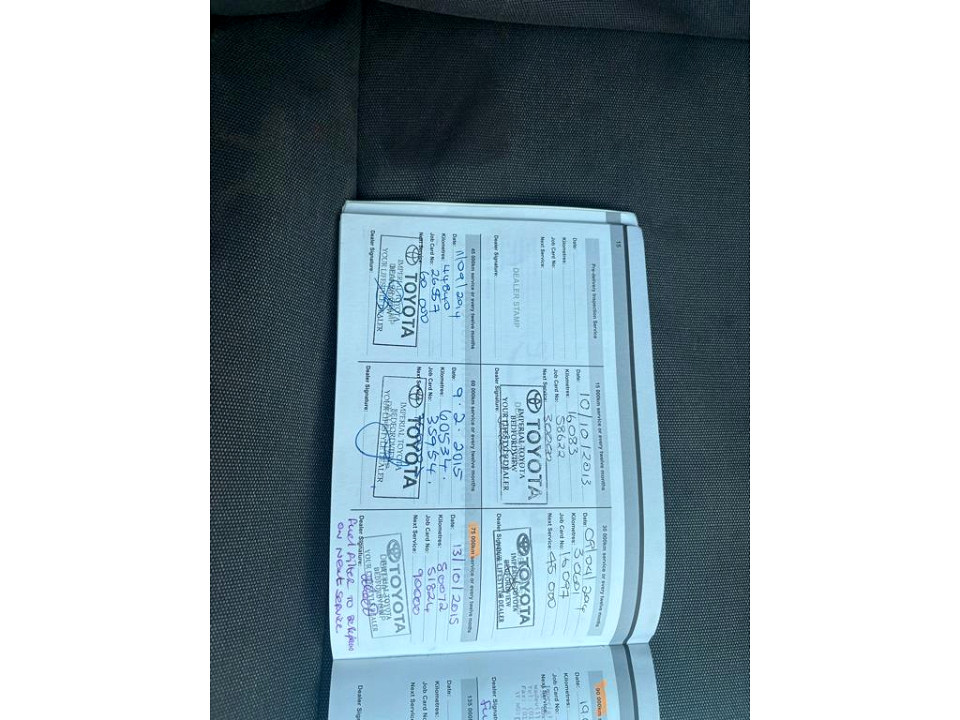 15
Pre-delivery Inspection Service
Date:
Kilometres:
Job Card No:
Next Service:
DEALER STAMP
Dealer Signature:
15 000km service or every twelve months
Date: 10/10/2013
Kilometres: 16083
Job Card No: 58622
Next Service: 30000
TOYOTA
IMPERIAL TOYOTA
BEDFORDVIEW
YOUR LIFESTYLE DEALER
Dealer Signature:
30 000km service or every twelve months
Date: 09/04/2014
Kilometres: 30601
Job Card No: 15097
Next Service: 45 000
TOYOTA
IMPERIAL TOYOTA
BEDFORDVIEW
YOUR LIFESTYLE DEALER
Dealer Signature:
45 000km service or every twelve months
Date: 11/09/2014
Kilometres: 44840
Job Card No: 26557
Next Service: 60 000
TOYOTA
IMPERIAL TOYOTA
BEDFORDVIEW
YOUR LIFESTYLE DEALER
Dealer Signature:
60 000km service or every twelve months
Date: 9.2.2015
Kilometres: 60534.
Job Card No: 35954.
Next Service:
TOYOTA
IMPERIAL TOYOTA
BEDFORDVIEW
YOUR LIFESTYLE DEALER
Dealer Signature:
75 000km service or every twelve months
Date: 13/10/2015
Kilometres: 80072
Job Card No: 51824
Next Service: 90000
TOYOTA
IMPERIAL TOYOTA
BEDFORDVIEW
YOUR LIFESTYLE DEALER
Dealer Signature:
Fuel Filter TO BE
ON NEXT SERVICE
90 000km
Date:
Kilometres:
Job Card No:
Next Service:
Dealer
Date:
Kilometres:
Job Card No:
Next Service:
Dealer Signature: